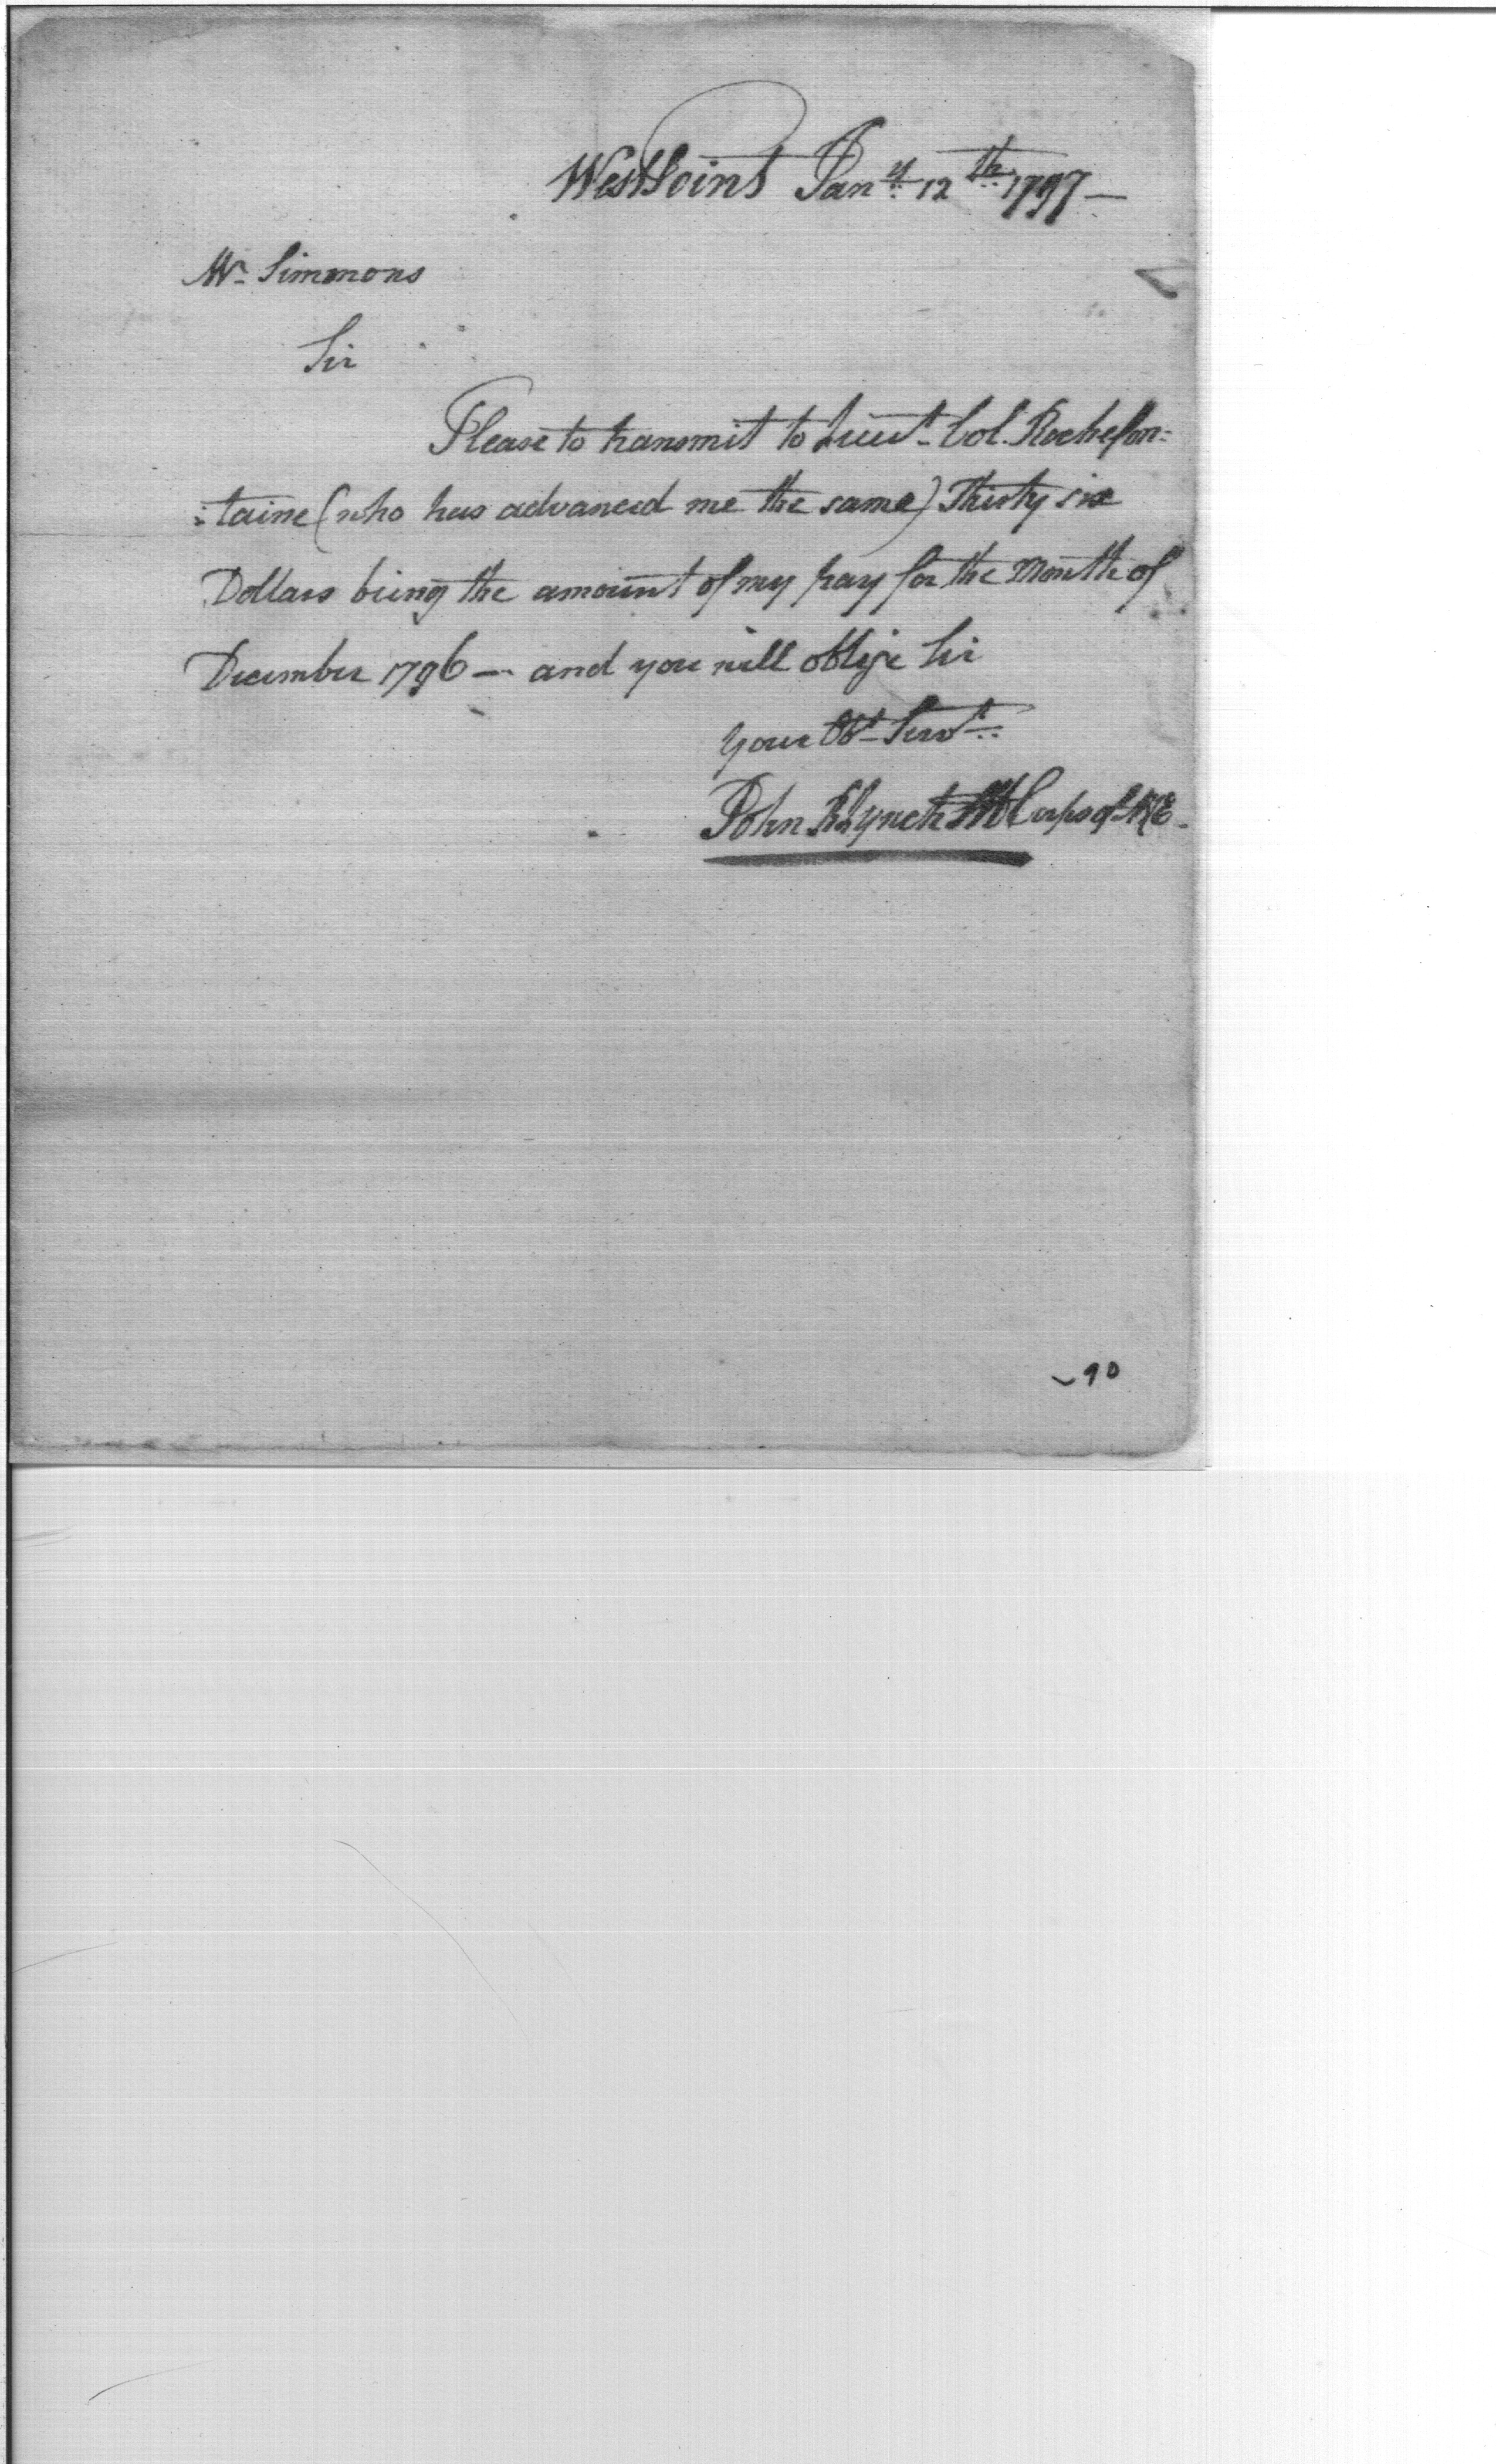 West Point Jany. 12th. 1797 —
Mr. Simmons
Sir
Please to transmit to Lieut. Col. Rochefon=
=taine (who has advanced me the same) Thirty six
Dollars being the amount of my pay for the Month of
December 1796 — and you will oblige Sir
your Obt. Servt.
John Lynch Corps of A&E.
90